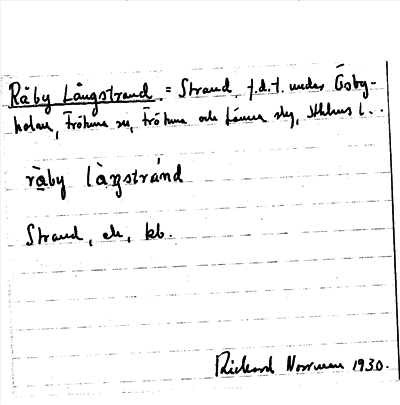 Råby Långstrand = Strand, f.d.t. under Ösby-
holm, Frötuna sn, Frötuna och Länna slg, Sthlms l.
ràby làŋstránd
Strand, ek, kb.
Rickard Norrman 1930.